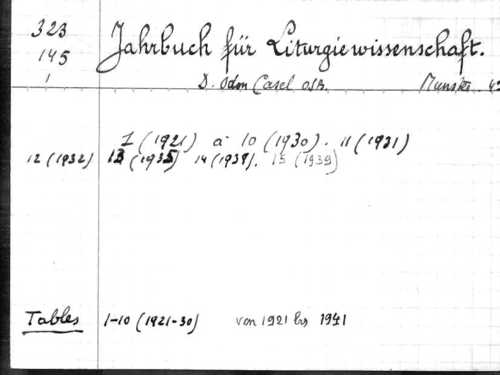 323 Jahrbuch für Liturgiewissenschaft.
145
1 D. Odon Casel OSB. Munster
1 (1921) à 10 (1930). 11 (1931)
12 (1932) 13 (1935) 14 (1937). 15 (1939)
Tables 1-10 (1921-30) von 1921 bis 1941